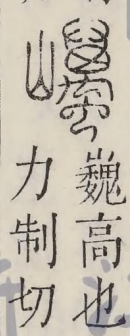 巍高也
力制切